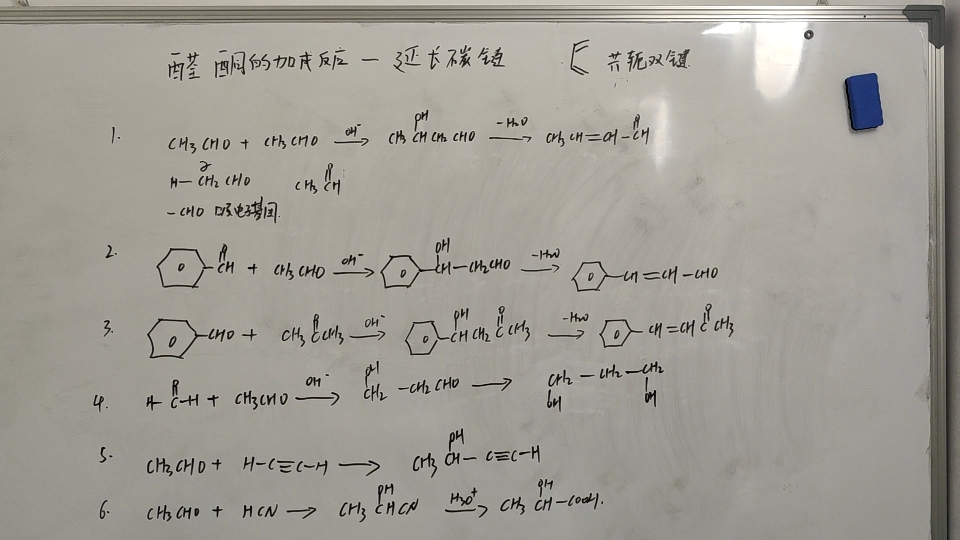 醛酮的加成反应 — 延长碳链 共轭双键
1. CH3CHO + CH3CHO —OH⁻→ CH3CH(OH)CH2CHO —-H2O→ CH3CH=CH-C(O)H
H-CH2CHO(α) CH3C(O)H
-CHO 吸电子基团
2. C(O)H + CH3CHO —OH⁻→ CH(OH)-CH2CHO —-H2O→ CH=CH-CHO
3. CHO + CH3C(O)CH3 —OH⁻→ CH(OH)CH2C(O)CH3 —-H2O→ CH=CHC(O)CH3
4. H-C(O)-H + CH3CHO —OH⁻→ CH2(OH)-CH2CHO → CH2(OH)-CH2-CH2(OH)
5. CH3CHO + H-C≡C-H → CH3CH(OH)-C≡C-H
6. CH3CHO + HCN → CH3CH(OH)CN —H3O⁺→ CH3CH(OH)-COOH.